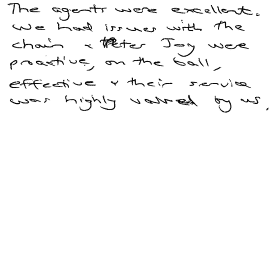 The agents were excellent.
We had issues with the
chain & Peter Joy were
proactive, on the ball,
effective & their service
was highly valued by us.